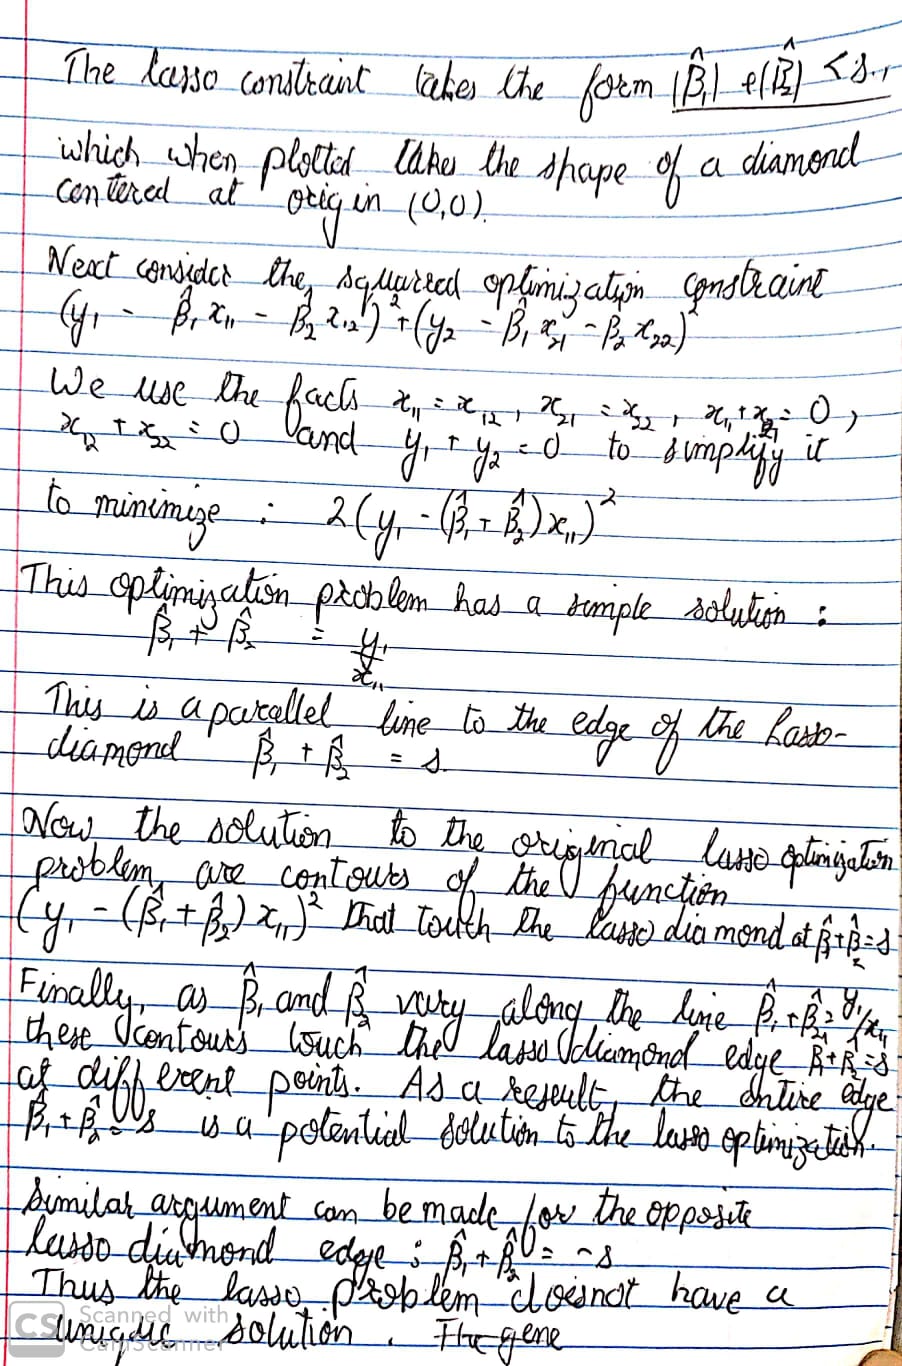 The lasso constraint takes the form |β̂₁| + |β̂₂| < s.,
which when plotted takes the shape of a diamond
centered at origin (0,0).
Next consider the squared optimization constraint
(y₁ - β̂₁x₁₁ - β̂₂x₁₂)² + (y₂ - β̂₁x₂₁ - β̂₂x₂₂)²
We use the facts x₁₁ = x₁₂, x₂₁ = x₂₂, x₁₁ + x₂₁ = 0,
x₁₂ + x₂₂ = 0 and y₁ + y₂ = 0 to simplify it
to minimize : 2(y₁ - (β̂₁ + β̂₂)x₁₁)²
This optimization problem has a simple solution :
β̂₁ + β̂₂ = y₁/x₁₁
This is a parallel line to the edge of the Lasso-
diamond β̂₁ + β̂₂ = s.
Now the solution to the original lasso optimization
problem, are contours of the function
(y₁ - (β̂₁ + β̂₂)x₁₁)² that touch the lasso diamond at β̂₁+β̂₂=s
Finally, as β̂₁ and β̂₂ vary along the line β̂₁+β̂₂=y₁/x₁₁
these contours touch the lasso diamond edge β̂₁+β̂₂=s
at different points. As a result, the entire edge
β̂₁ + β̂₂ = s is a potential solution to the lasso optimization.
Similar argument can be made for the opposite
lasso diamond edge : β̂₁ + β̂₂ = -s
Thus the lasso problem doesnot have a
unique solution. The gene
CS Scanned with
CamScanner